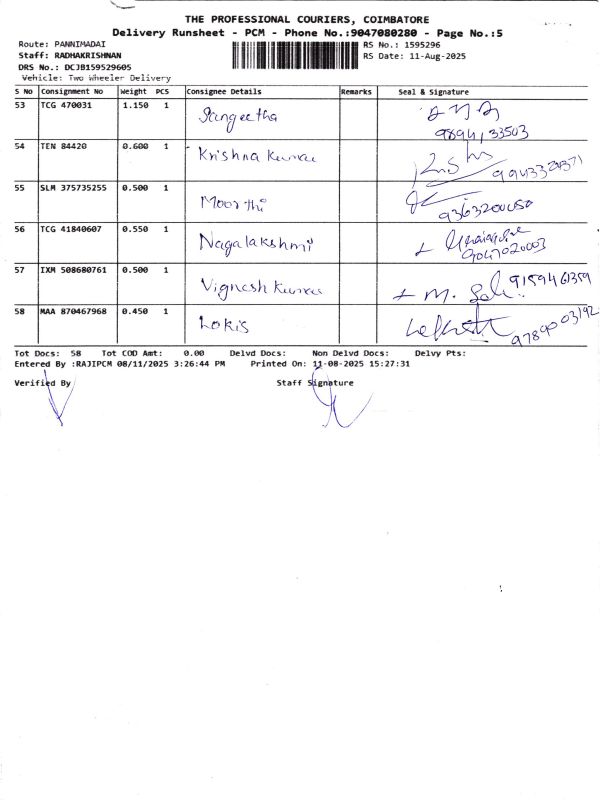 THE PROFESSIONAL COURIERS, COIMBATORE
Delivery Runsheet - PCM - Phone No.:9047080280 - Page No.:5
Route: PANNIMADAI
Staff: RADHAKRISHNAN
DRS No.: DCJB159529605
Vehicle: Two Wheeler Delivery
RS No.: 1595296
RS Date: 11-Aug-2025
S No Consignment No Weight PCS Consignee Details Remarks Seal & Signature
53 TCG 470031 1.150 1 Sangeetha
9894133503
54 TEN 84420 0.600 1 Krishna Kumar
55 SLM 375735255 0.500 1 Moorthi
56 TCG 41840607 0.550 1 Nagalakshmi
9047020003
57 IXM 508680761 0.500 1 Vignesh Kumar 9159461359
58 MAA 870467968 0.450 1 Lokis
9789003192
Tot Docs: 58 Tot COD Amt: 0.00 Delvd Docs: Non Delvd Docs: Delvy Pts:
Entered By :RAJIPCM 08/11/2025 3:26:44 PM Printed On: 11-08-2025 15:27:31
Verified By Staff Signature